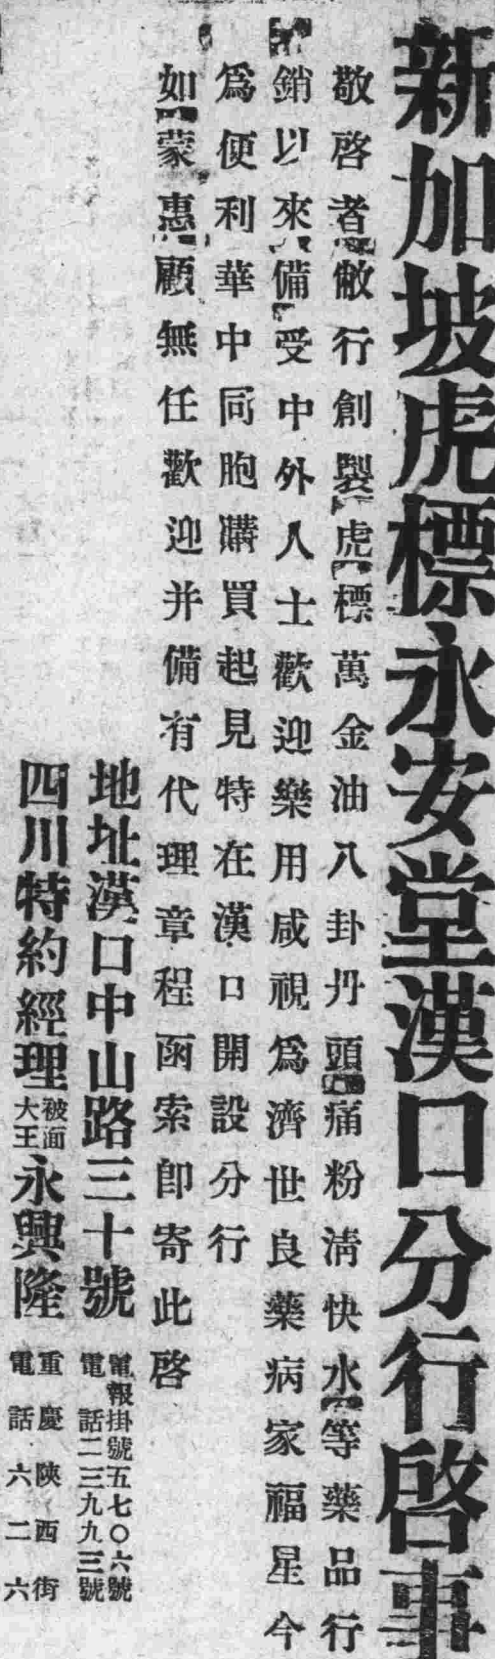 新加坡虎標永安堂漢口分行啓事
敬啓者敝行創製虎標萬金油八卦丹頭痛粉清快水等藥品行
銷以來備受中外人士歡迎樂用咸視爲濟世良藥病家福星今
爲便利華中同胞購買起見特在漢口開設分行
如蒙惠顧無任歡迎并備有代理章程函索卽寄此啓
地址漢口中山路三十號
電報掛號五七〇六號
電話二三九九三號
四川特約經理
被面
大王
永興隆
重慶陝西街
電話六二六